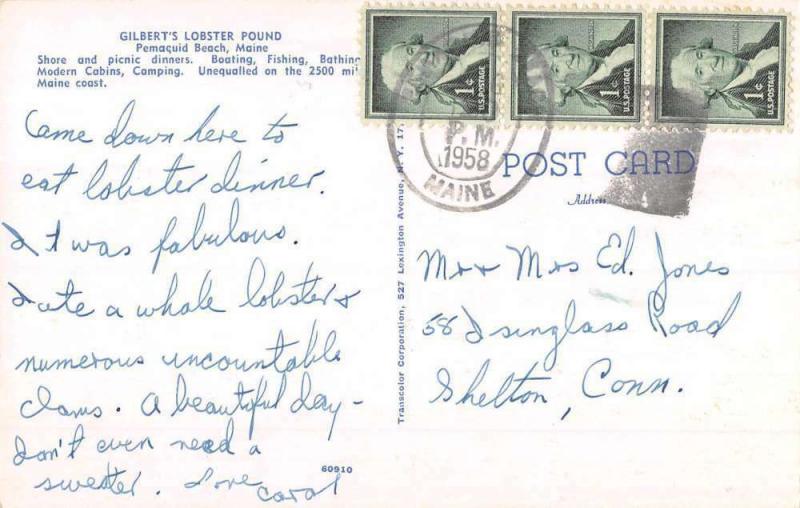 GILBERT'S LOBSTER POUND
Pemaquid Beach, Maine
Shore and picnic dinners. Boating, Fishing, Bathing
Modern Cabins, Camping. Unequalled on the 2500 mil
Maine coast.
Came down here to
eat lobster dinner.
It was fabulous.
I ate a whole lobster &
numerous uncountable
clams. A beautiful day -
don't even need a
sweater. Love
Carol
60910
Transcolor Corporation, 527 Lexington Avenue, N. Y. 17,
1¢
U.S. POSTAGE
1¢
U.S. POSTAGE
1¢
U.S. POSTAGE
P. M.
1958
MAINE
POST CARD
Address
Mr & Mrs Ed. Jones
58 Isinglass Road
Shelton, Conn.